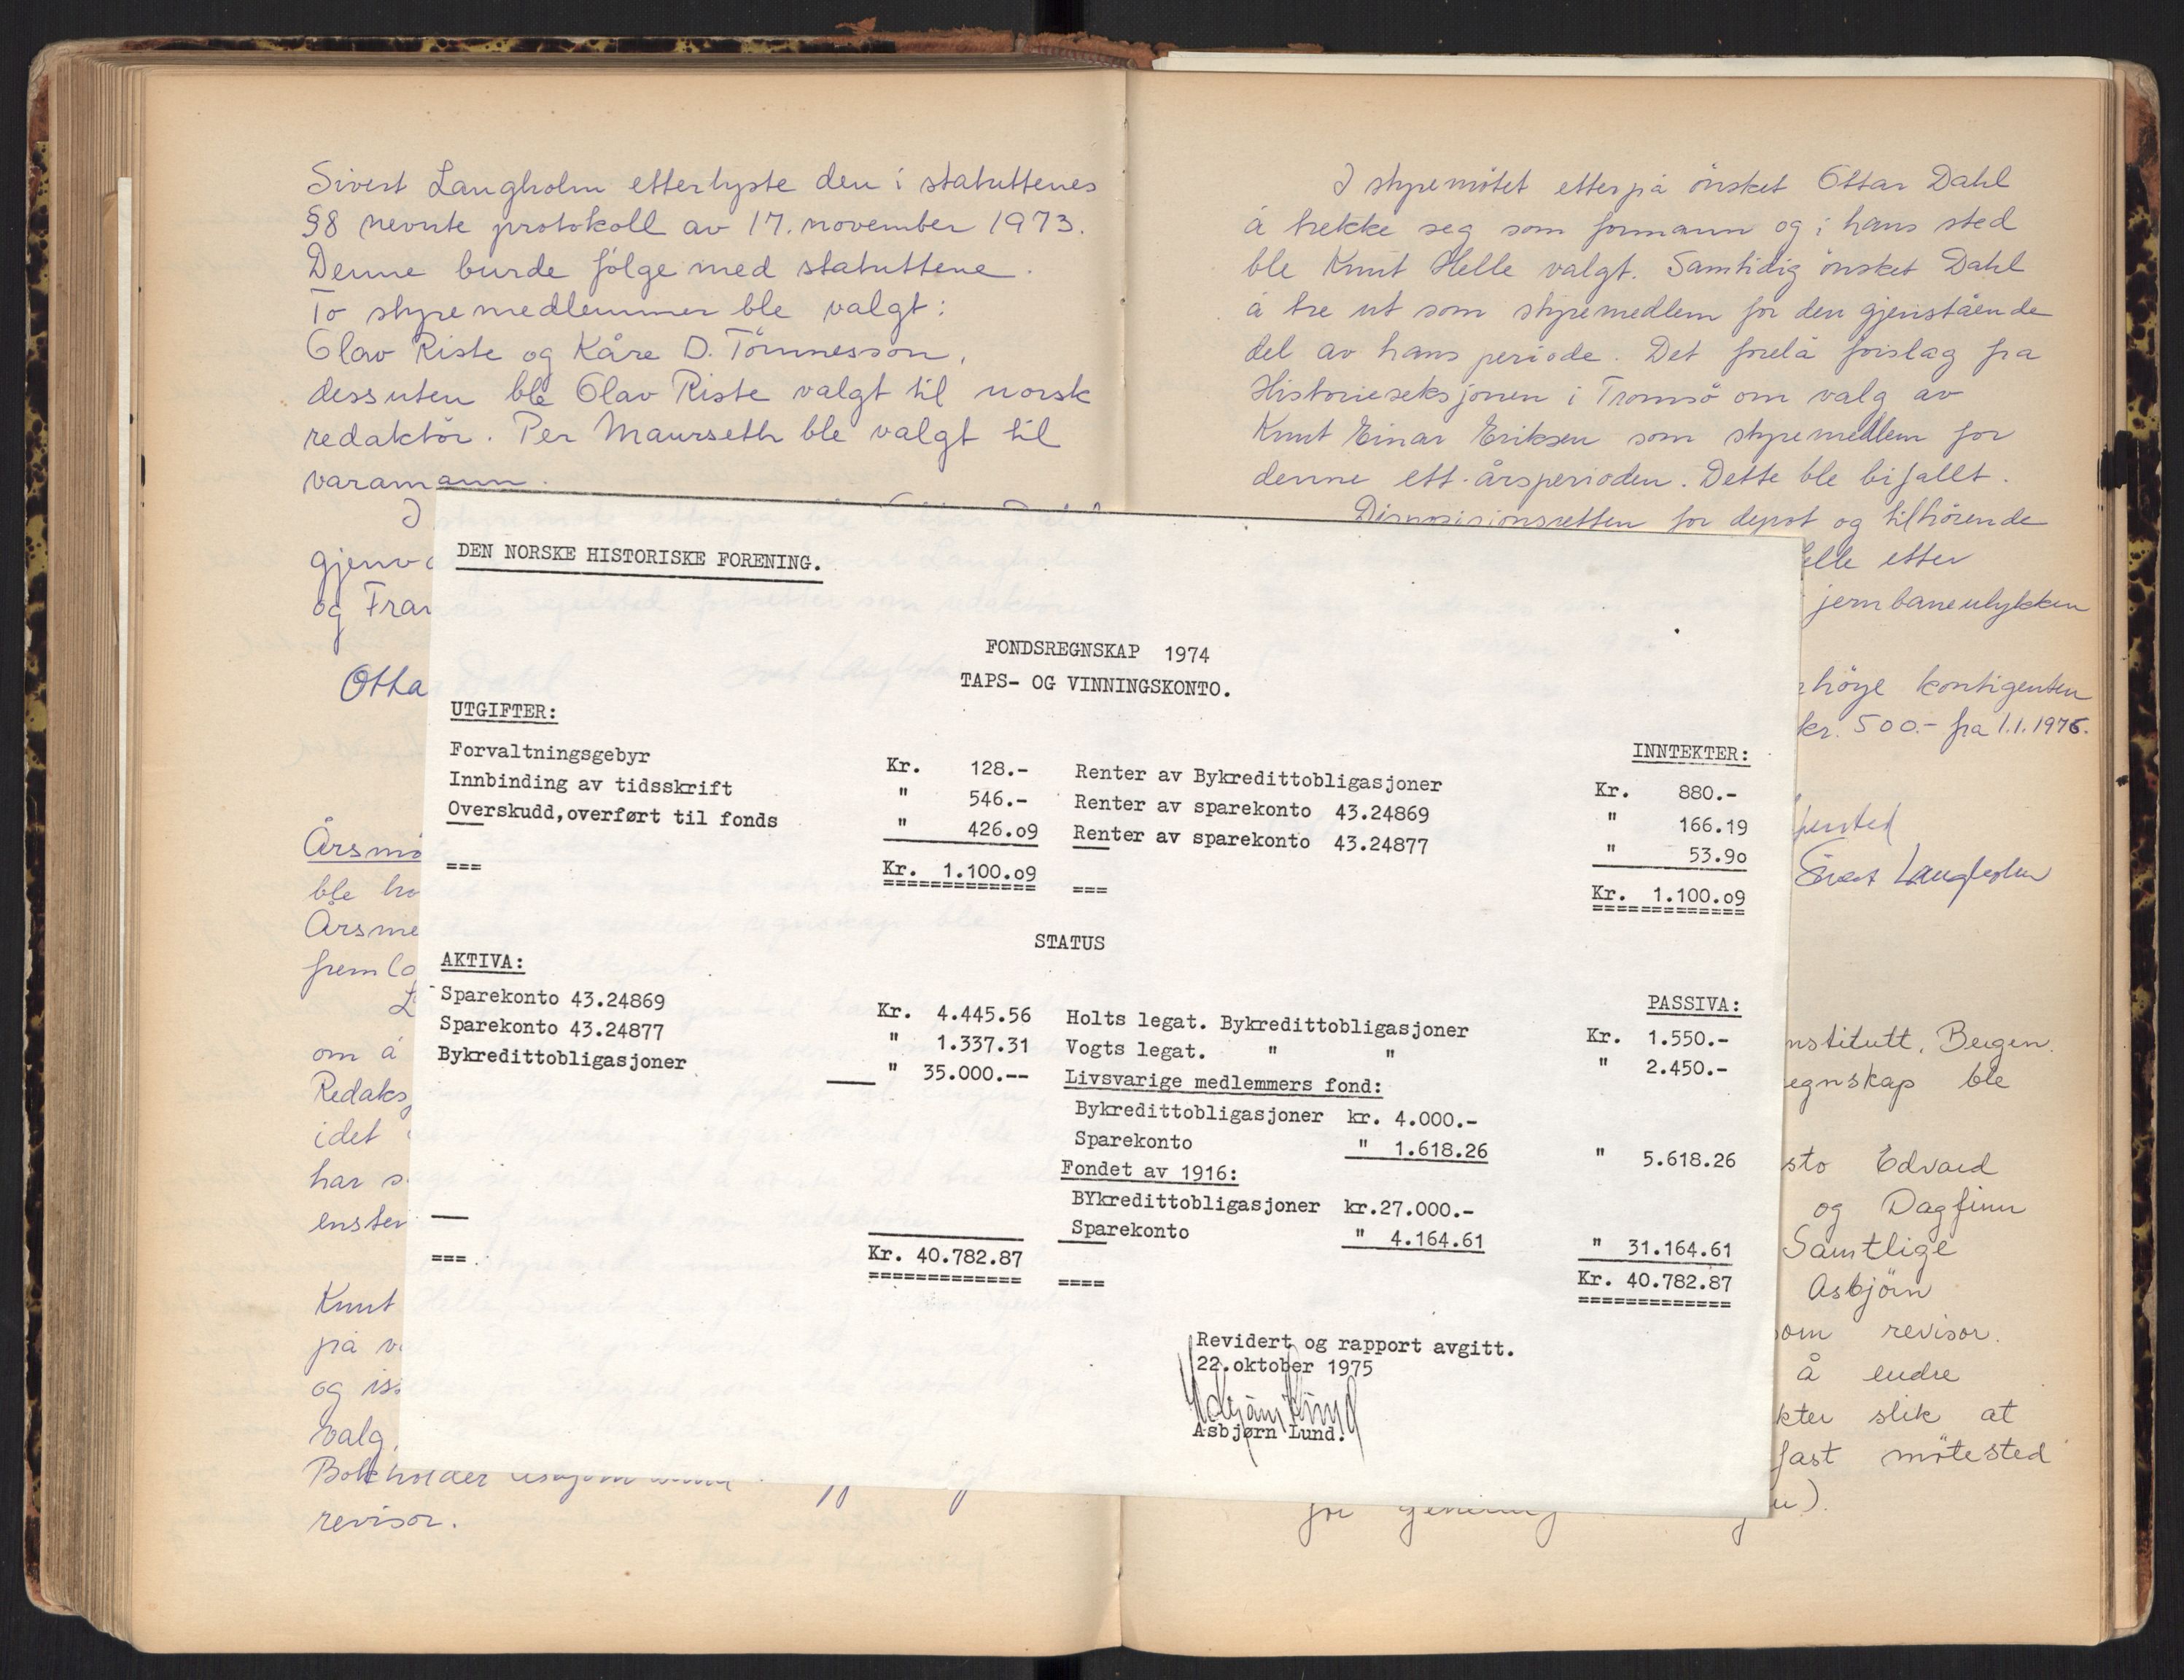 Sivert Langholm etterlyste den i statuttenes
§8 nevnte protokoll av 17. november 1973.
Denne burde følge med statuttene.
To styremedlemmer ble valgt:
Olav Riste og Kåre D. Tönnesson,
dessuten ble Olav Riste valgt til norsk
redaktör. Per Maurseth ble valgt til
varamann.
I
gjenv
og Fran
Otta
Årsmö
ble ho
Årsme
fremla
om å
Redaks
idet
har s
enster
Knut
på v
og iss
valg.
Bokholder
revisor.
DEN NORSKE HISTORISKE FORENING.
FONDSREGNSKAP 1974
TAPS- OG VINNINGSKONTO.
UTGIFTER:
Forvaltningsgebyr Kr. 128.-
Innbinding av tidsskrift " 546.-
Overskudd,overført til fonds " 426.o9
=== Kr. 1.100.o9
INNTEKTER:
Renter av Bykredittobligasjoner Kr. 880.-
Renter av sparekonto 43.24869 " 166.19
Renter av sparekonto 43.24877 " 53.9o
=== Kr. 1.100.o9
STATUS
AKTIVA:
Sparekonto 43.24869 Kr. 4.445.56
Sparekonto 43.24877 " 1.337.31
Bykredittobligasjoner " 35.000.--
=== Kr. 40.782.87
PASSIVA:
Holts legat. Bykredittobligasjoner Kr. 1.550.-
Vogts legat. " " " 2.450.-
Livsvarige medlemmers fond:
Bykredittobligasjoner kr. 4.000.-
Sparekonto " 1.618.26 " 5.618.26
Fondet av 1916:
BYkredittobligasjoner kr.27.000.-
Sparekonto " 4.164.61 " 31.164.61
==== Kr. 40.782.87
Revidert og rapport avgitt.
22.oktober 1975
Asbjørn Lund.
I styremötet etterpå önsket Ottar Dahl
å trekke seg som formann og i hans sted
ble Knut Helle valgt. Samtidig önsket Dahl
å tre ut som styremedlem for den gjenstående
del av hans periode. Det forelå forslag fra
Historieseksjonen i Tromsö om valg av
Knut Einar Eriksen som styremedlem for
denne ett-årsperioden. Dette ble bifallt.
Disposisjonsretten for depot og tilhörende
elle etter
jernbaneulykken
höye kontigenten
kr. 500.- fra 1.1.1976.
Sivert Langholm
nstitutt, Bergen.
egnskap ble
sto Edvard
og Dagfinn
Samtlige
Asbjörn
som revisor.
å endre
kter slik at
fast mötested
for